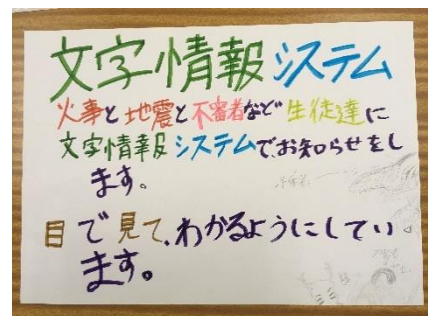 文字情報システム
火事と地震と不審者など生徒達に
文字情報システムで、お知らせをし
ます。
目で見て、わかるようにしてい
ます。